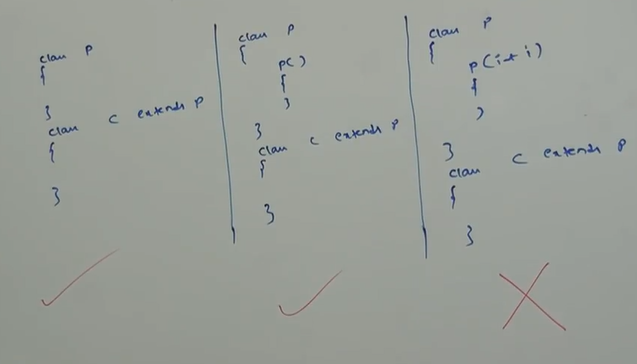 class P
{
}
class C extends P
{
}
class P
{
P()
{
}
}
class C extends P
{
}
class P
{
P(int i)
{
}
}
class C extends P
{
}